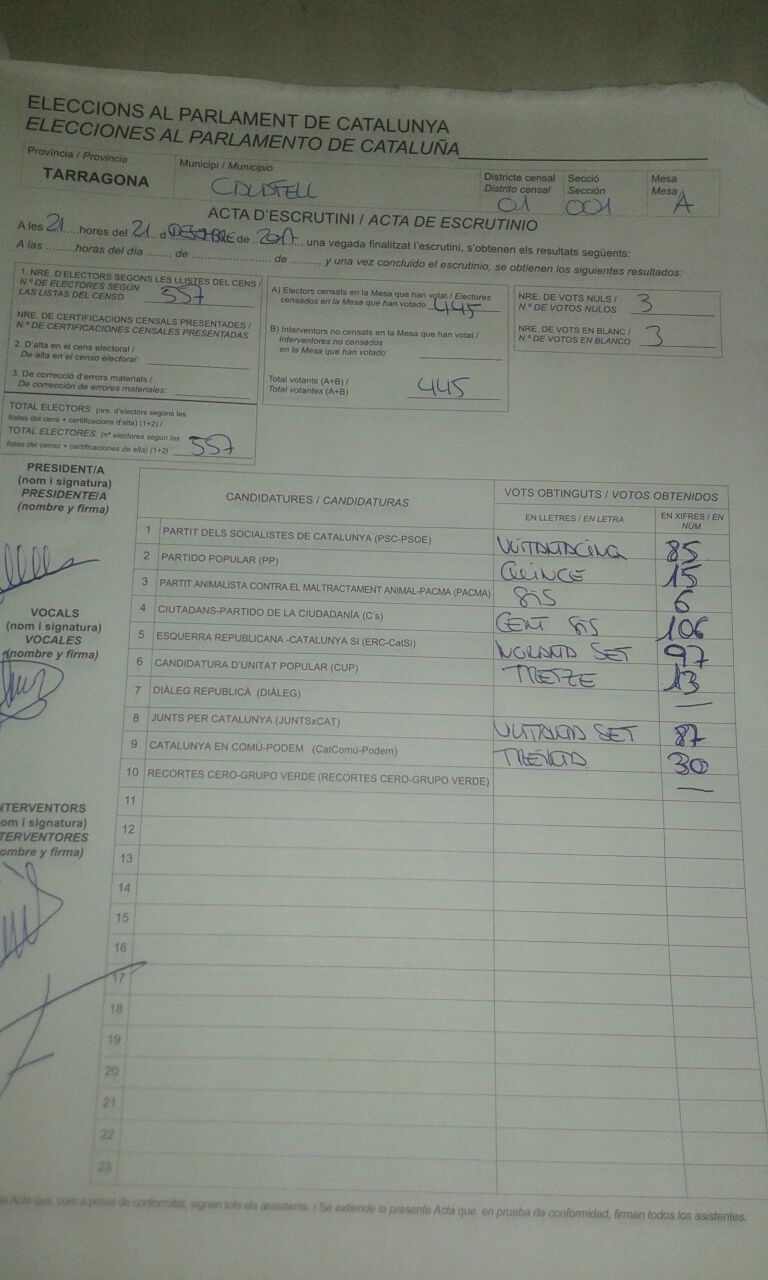 ELECCIONS AL PARLAMENT DE CATALUNYA
ELECCIONES AL PARLAMENTO DE CATALUÑA
Província / Provincia
TARRAGONA
Municipi / Municipio
Districte censal
Distrito censal
01
Secció
Sección
001
Mesa
Mesa
A
ACTA D'ESCRUTINI / ACTA DE ESCRUTINIO
A les 21 hores del 21 d DESEMBRE de 2017, una vegada finalitzat l'escrutini, s'obtenen els resultats següents:
A las ......... horas del día ........ de .......................... de ........., y una vez concluido el escrutinio, se obtienen los siguientes resultados:
1. NRE. D'ELECTORS SEGONS LES LLISTES DEL CENS /
N.º DE ELECTORES SEGÚN
LAS LISTAS DEL CENSO 557
NRE. DE CERTIFICACIONS CENSALS PRESENTADES /
N.º DE CERTIFICACIONES CENSALES PRESENTADAS
2. D'alta en el cens electoral /
De alta en el censo electoral:
3. De correcció d'errors materials /
De corrección de errores materiales:
TOTAL ELECTORS: (nre. d'electors segons les
llistes del cens + certificacions d'alta) (1+2) /
TOTAL ELECTORES: (nº electores según las
listas del censo + certificaciones de alta) (1+2) 557
A) Electors censats en la Mesa que han votat / Electores
censados en la Mesa que han votado 445
B) Interventors no censats en la Mesa que han votat /
Interventores no censados
en la Mesa que han votado
Total votants (A+B) /
Total votantes (A+B) 445
NRE. DE VOTS NULS /
N.º DE VOTOS NULOS 3
NRE. DE VOTS EN BLANC /
N.º DE VOTOS EN BLANCO 3
PRESIDENT/A
(nom i signatura)
PRESIDENTE/A
(nombre y firma)
VOCALS
(nom i signatura)
VOCALES
(nombre y firma)
NTERVENTORS
om i signatura)
TERVENTORES
ombre y firma)
CANDIDATURES / CANDIDATURAS
VOTS OBTINGUTS / VOTOS OBTENIDOS
EN LLETRES / EN LETRA
EN XIFRES / EN NÚM.
1 PARTIT DELS SOCIALISTES DE CATALUNYA (PSC-PSOE) VUITANTACINQ 85
2 PARTIDO POPULAR (PP) QUINCE 15
3 PARTIT ANIMALISTA CONTRA EL MALTRACTAMENT ANIMAL-PACMA (PACMA) SIS 6
4 CIUTADANS-PARTIDO DE LA CIUDADANÍA (C's) CENT SIS 106
5 ESQUERRA REPUBLICANA -CATALUNYA SI (ERC-CatSí) NORANTA SET 97
6 CANDIDATURA D'UNITAT POPULAR (CUP) TRETZE 13
7 DIÀLEG REPUBLICÀ (DIÀLEG) —
8 JUNTS PER CATALUNYA (JUNTSxCAT) VUITANTA SET 87
9 CATALUNYA EN COMÚ-PODEM (CatComú-Podem) TRENTA 30
10 RECORTES CERO-GRUPO VERDE (RECORTES CERO-GRUPO VERDE) —
11
12
13
14
15
16
17
18
19
20
21
22
23
Acta que, com a prova de conformitat, signen tots els assistents. / Se extiende la presente Acta que, en prueba de conformidad, firman todos los asistentes.